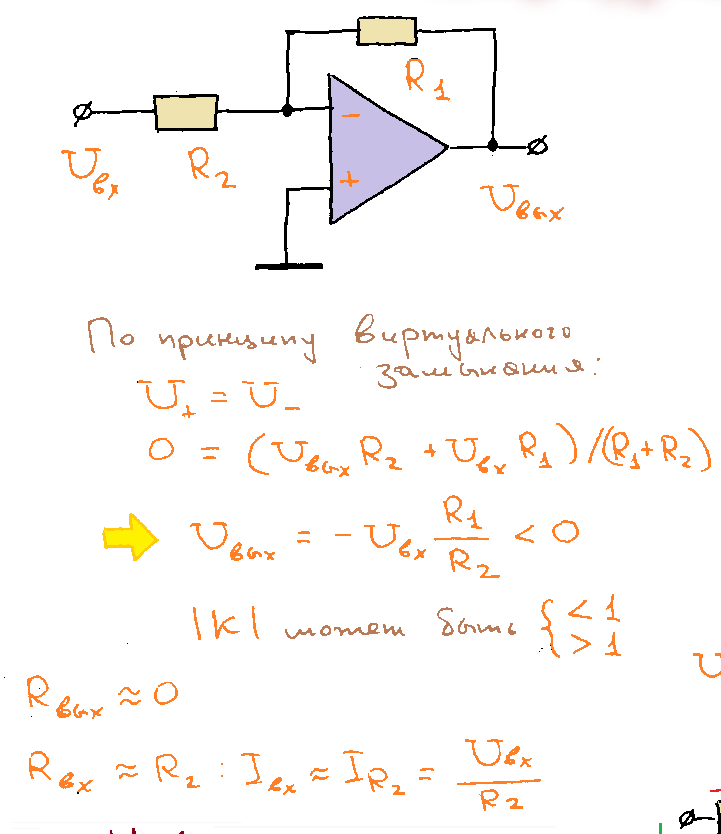 R₁
−
+
U_вх R₂ U_вых
По принципу виртуального
замыкания:
U₊ = U₋
0 = (U_вых R₂ + U_вх R₁)/(R₁+R₂)
U_вых = −U_вх R₁/R₂ < 0
|K| может быть { < 1
> 1
U
R_вых ≈ 0
R_вх ≈ R₂ : I_вх ≈ I_R₂ = U_вх/R₂